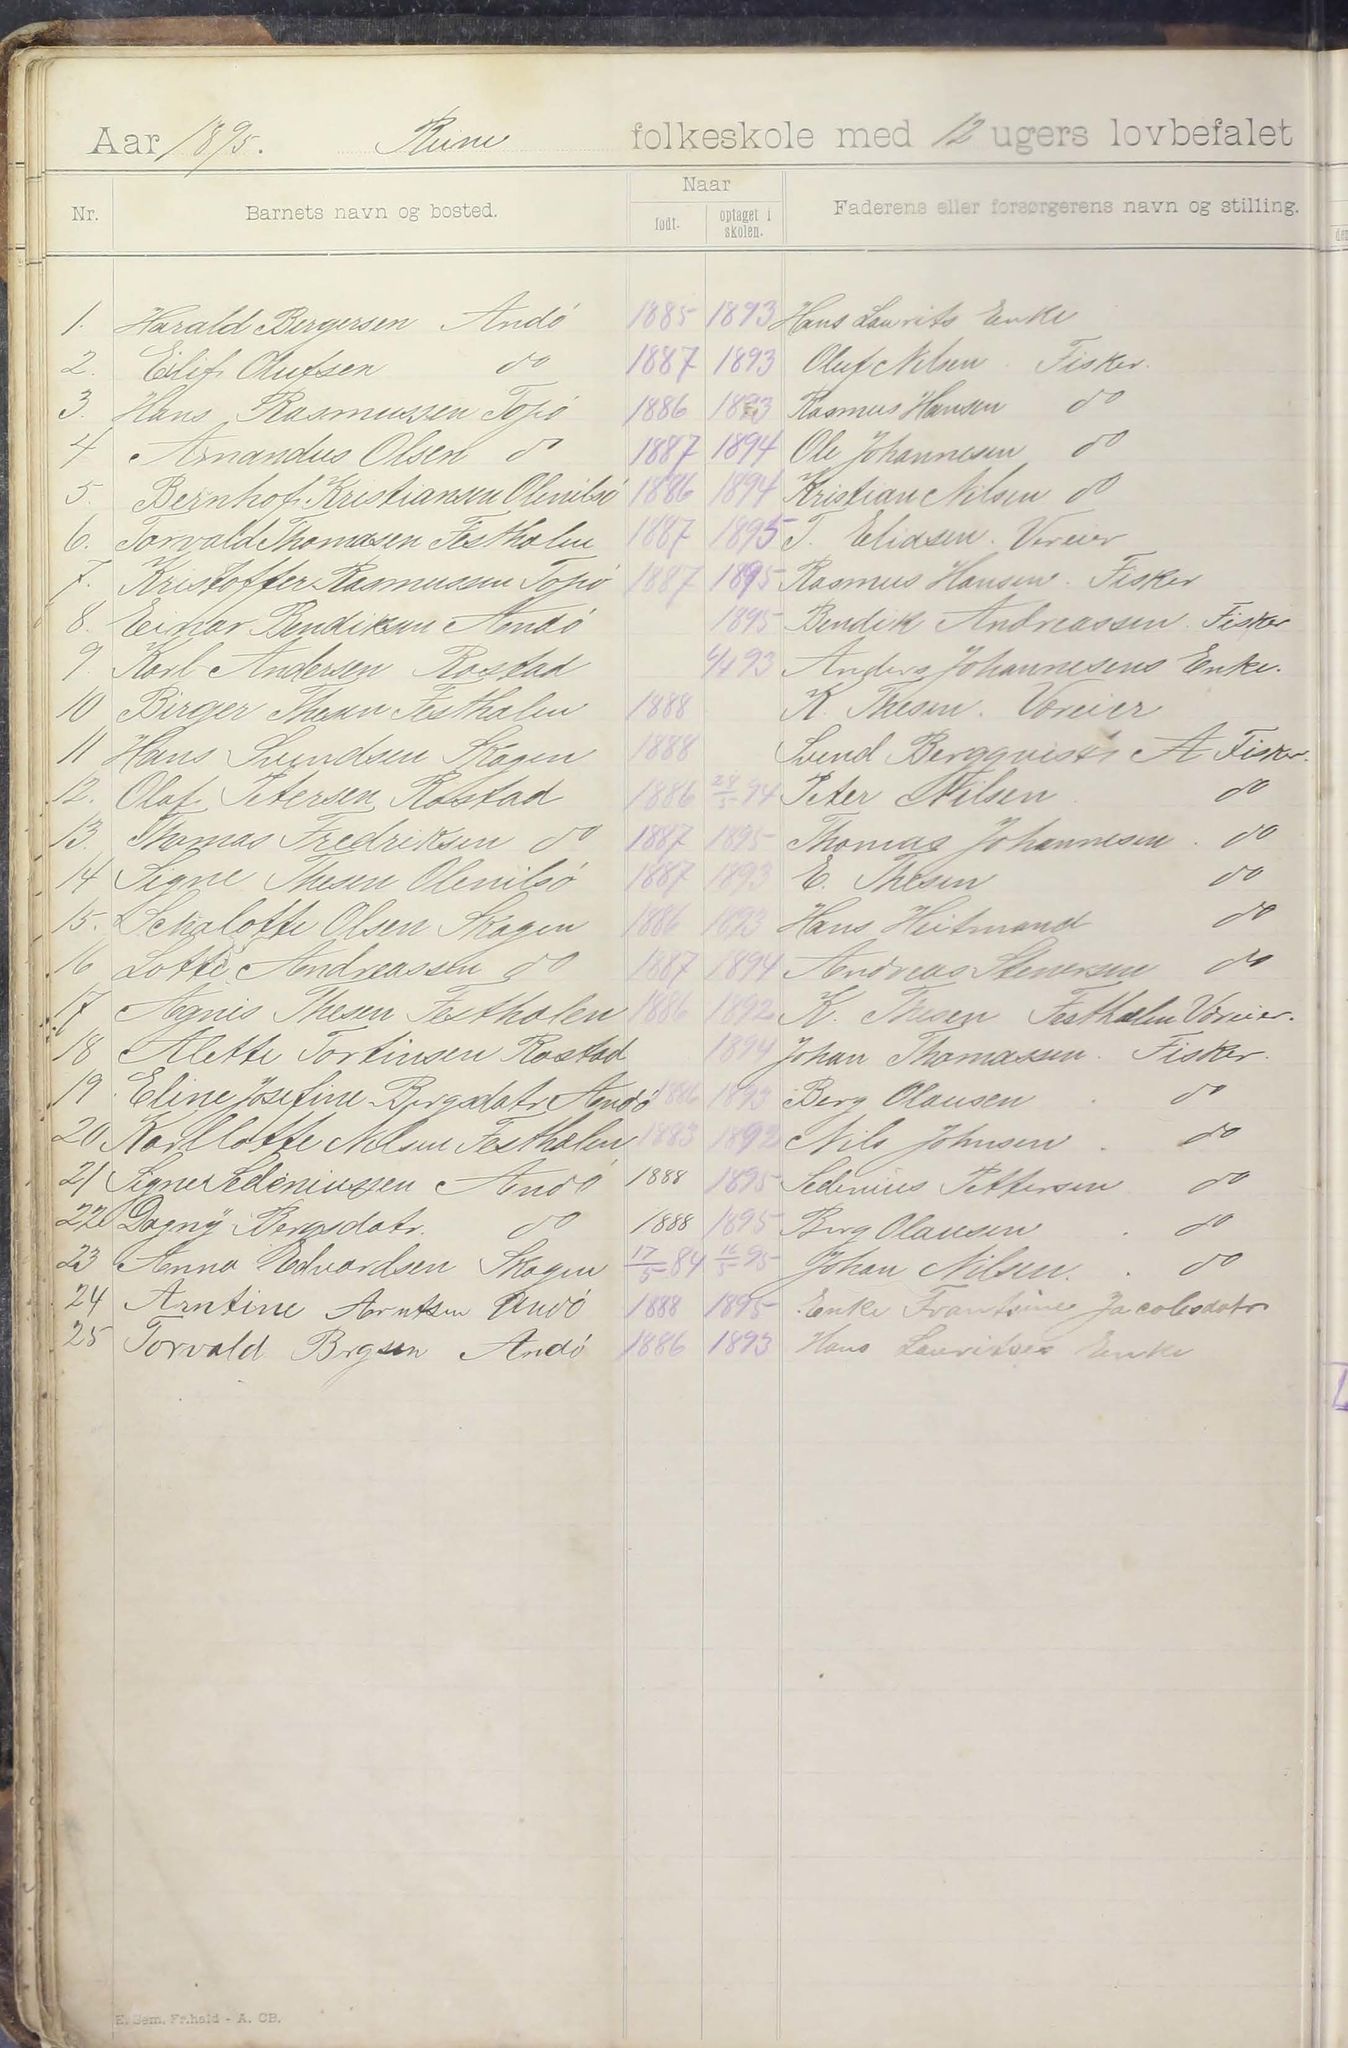 Aar 1895. Reine folkeskole med 12 ugers lovbefalet
Nr. Barnets navn og bosted. Naar født. optaget i skolen. Faderens eller forsørgerens navn og stilling.
1. Harald Bergersen Andö 1885 1893 Hans Laurits Enke
2. Eilif Olufsen do 1887 1893 Oluf Nilsen Fisker.
3. Hans Rasmussen Topö 1886 1893 Rasmus Hansen do
4 Arnandus Olsen do 1887 1894 Ole Johannesen do
5. Bernhof Kristiansen Olenilsö 1886 1894 Kristian Nilsen do
6. Torvald Thomasen Festhalen 1887 1895 T. Eliasen. Væreier
7. Kristoffer Rasmussen Topö 1887 1895 Rasmus Hansen. Fisker
8. Einar Bendiksen Andö 1895 Bendik Andreassen. Fisker
9. Karl Andersen Rostad 93 Anders Johannesens Enke.
10 Birger Thesen Festhalen 1888 K. Thesen. Væreier
11 Hans Svendsen Skagen 1888 Svend Bergqvist A Fisker.
12. Olaf Petersen Rostad 1886 28/5 94 Peter Nilsen do
13. Thomas Fredriksen do 1887 1895 Thomas Johannesen. do
14 Signe Thesen Olenilsö 1887 1893 E. Thesen do
15. Schalotte Olsen Skagen 1886 1893 Hans Heitmand do
16 Lotte Andreassen do 1887 1894 Andreas Stenersen do
17 Agnes Thesen Festhalen 1886 1892 K. Thesen Festhalen Væreier.
18 Alette Tortinsen Rostad 1894 Johan Thomassen. Fisker.
19. Eline Josefine Bergsdatr. Andö 1886 1893 Berg Olausen. do
20 Karllotte Nilsen Festhalen 1883 1892 Nils Johnsen. do
21 Signe Sedeniussen Andö 1888 1895 Sedenius Pettersen do
22 Dagny Bergsdatr. do 1888 1895 Berg Olausen. do
23 Anna Edvardsen Skagen 17/5 84 16/5 95 Johan Nilsen. do
24 Arntine Arntsen Andö 1888 1895 Enke Frantsine Jacobsdatr
25 Torvald Brgsen Andö 1886 1893 Hans Lauritses Enke
E. Sem. Fr.hald - A. CB.